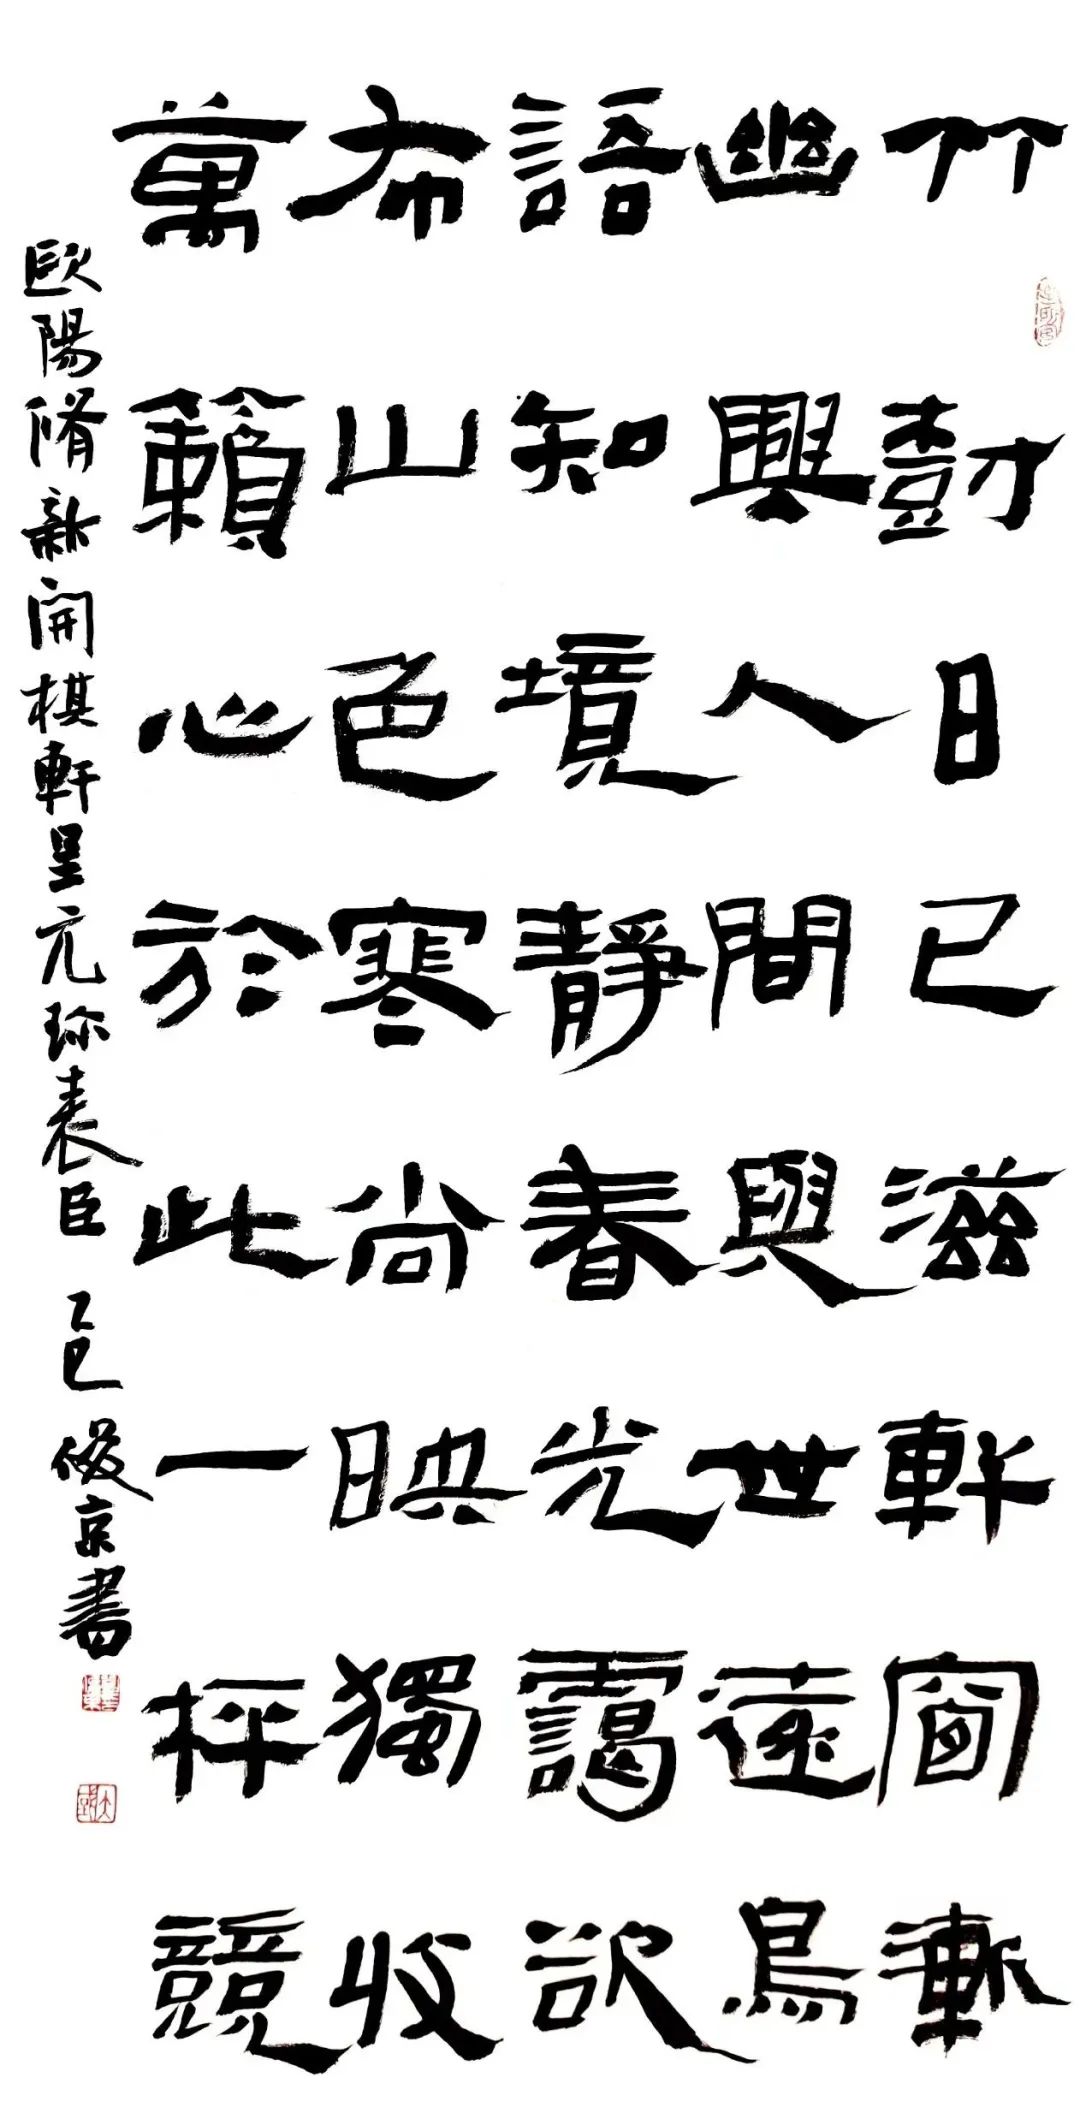 竹樹日已滋軒窗漸
幽興人間與世遠鳥
語知境靜春光靄欲
布山色寒尚映獨收
萬籟心於此一枰競
歐陽脩新開棋軒呈元珍表臣 乙巳俊京書